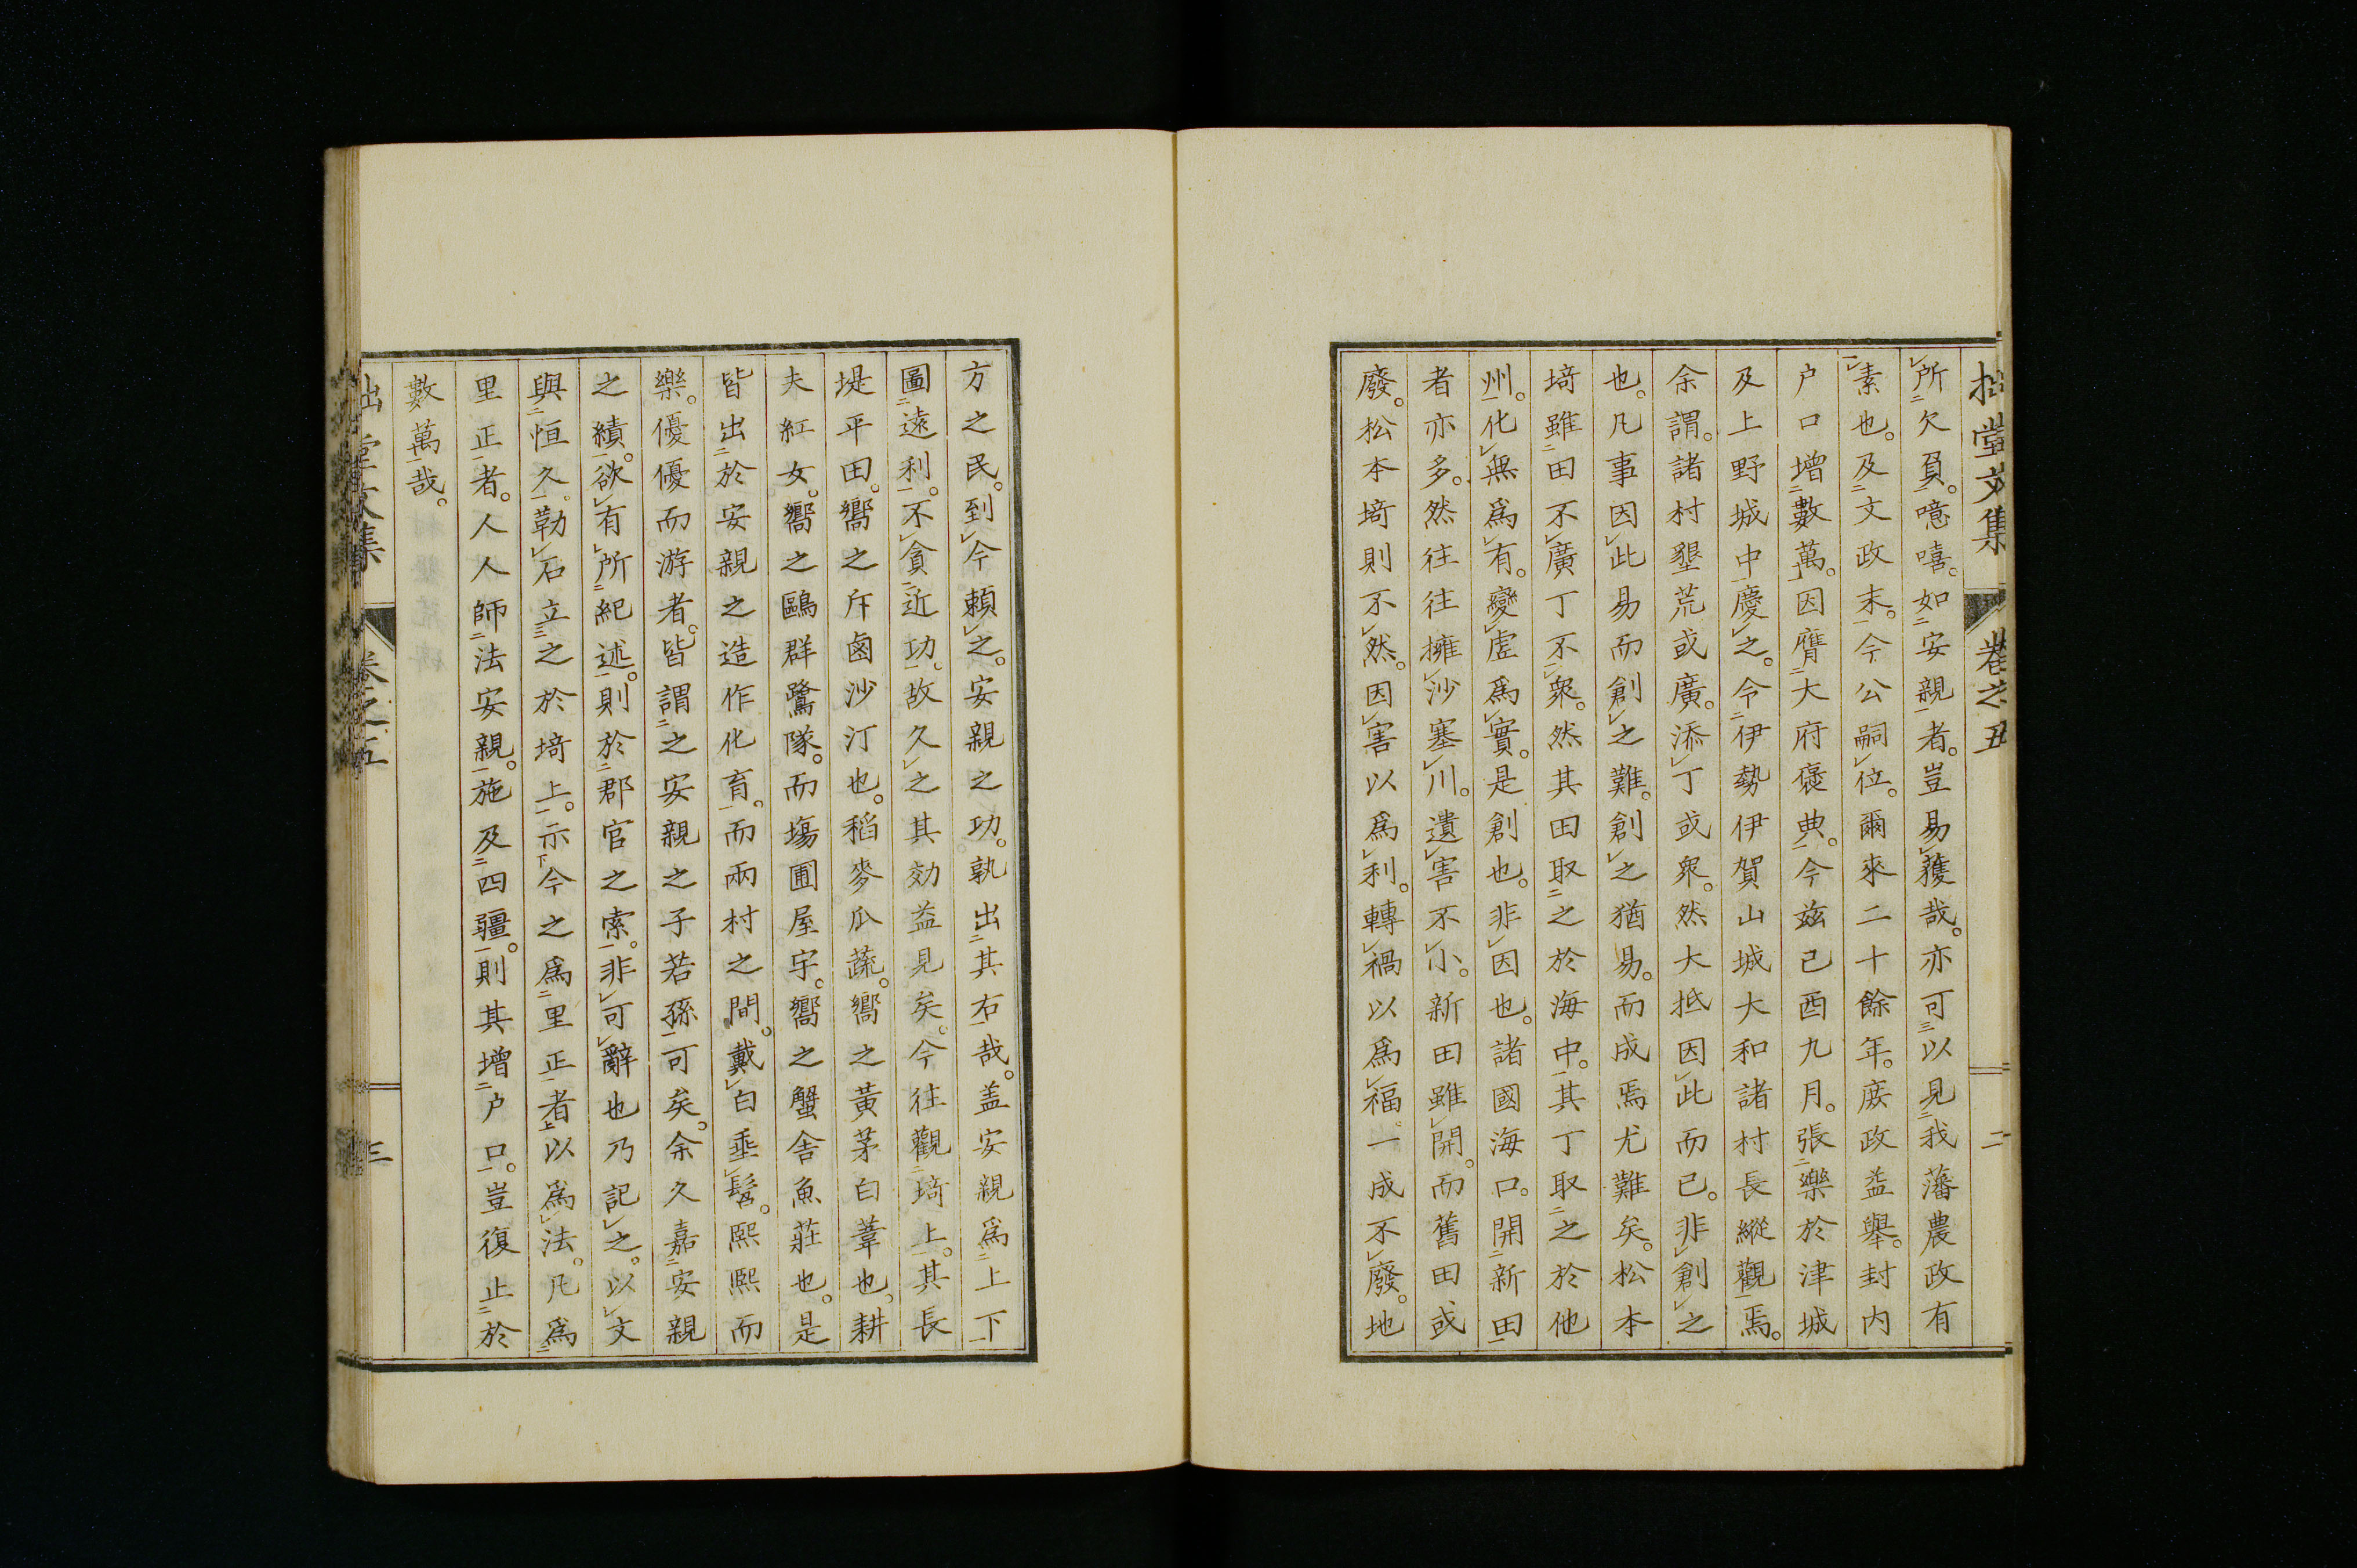 拙堂文集 卷之五 二
所欠負。噫嘻。如安親者。豈易獲哉。亦可以見我藩農政有
素也。及文政末。今公嗣位。爾來二十餘年。庶政益舉。封内
户口增數萬。因膺大府褒典。今玆己酉九月。張樂於津城
及上野城中慶之。令伊勢伊賀山城大和諸村長縱觀焉。
余謂。諸村墾荒或廣。添丁或衆。然大抵因此而已。非創之
也。凡事因此易而創之難。創之猶易。而成焉尤難矣。松本
埼雖田不廣丁不衆。然其田取之於海中。其丁取之於他
州。化無爲有。變虛爲實。是創也。非因也。諸國海口。開新田
者亦多。然往往擁沙塞川。遺害不小。新田雖開。而舊田或
廢。松本埼則不然。因害以爲利。轉禍以爲福。一成不廢。地
方之民。到今賴之。安親之功。孰出其右哉。盖安親爲上下
圖遠利。不貪近功。故久之其効益見矣。今往觀埼上。其長
堤平田。嚮之斥鹵沙汀也。稻麥瓜蔬。嚮之黃茅白葦也。耕
夫紅女。嚮之鷗群鷺隊。而塲圃屋宇。嚮之蟹舍魚莊也。是
皆出於安親之造作化育。而兩村之間。戴白垂髫。熙熙而
樂。優優而游者。皆謂之安親之子若孫可矣。余久嘉安親
之績。欲有所紀述。則於郡官之索。非可辭也乃記之。以文
與恒久。勒石立之於埼上。示今之爲里正者以爲法。凡爲
里正者。人人師法安親。施及四疆。則其增户口。豈復止於
數萬哉。
拙堂文集 卷之五 三